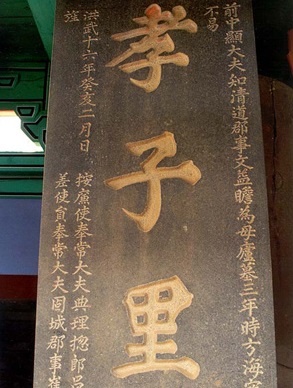 前中顯大夫知清道郡事文益瞻為母廬墓三年時方海
不易
孝子里
洪武十六年癸亥二月日
旌
按廉使奉常大夫典理摠郎呂
差使員奉常大夫固城郡事崔